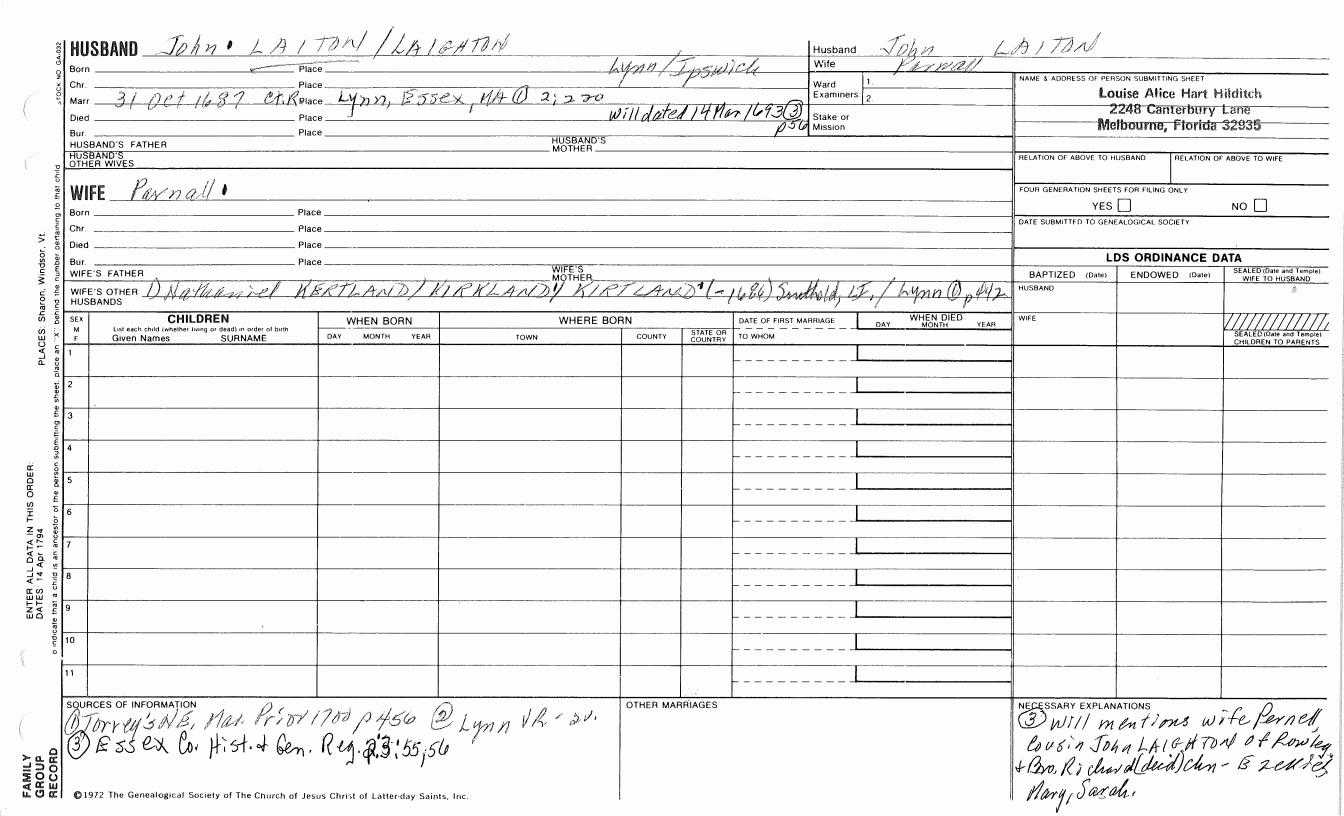 HUSBAND John LAITON/LAIGHTON
Husband John LAITON
Wife Parnall
Born Place Lynn/Ipswich
Chr. Place
Marr 31 Oct 1687 Ct.R. Place Lynn, Essex, MA ① 2; 220
Died Place Will dated 14 Mar 1693 ③
p56
Bur. Place
HUSBAND'S FATHER
HUSBAND'S MOTHER
HUSBAND'S OTHER WIVES
Ward Examiners 1 2
Stake or Mission
NAME & ADDRESS OF PERSON SUBMITTING SHEET
Louise Alice Hart Hilditch
2248 Canterbury Lane
Melbourne, Florida 32935
RELATION OF ABOVE TO HUSBAND
RELATION OF ABOVE TO WIFE
FOUR GENERATION SHEETS FOR FILING ONLY
YES NO
DATE SUBMITTED TO GENEALOGICAL SOCIETY
WIFE Parnall
Born Place
Chr. Place
Died Place
Bur. Place
WIFE'S FATHER
WIFE'S MOTHER
WIFE'S OTHER HUSBANDS 1) Nathaniel KERTLAND/KIRKLAND/KIRTLAND (-1686) Southold, LI. / Lynn ① p442
LDS ORDINANCE DATA
BAPTIZED (Date) ENDOWED (Date) SEALED (Date and Temple) WIFE TO HUSBAND
HUSBAND
WIFE
SEALED (Date and Temple) CHILDREN TO PARENTS
SEX M F
CHILDREN
List each child (whether living or dead) in order of birth
Given Names SURNAME
WHEN BORN
DAY MONTH YEAR
WHERE BORN
TOWN COUNTY STATE OR COUNTRY
DATE OF FIRST MARRIAGE
TO WHOM
WHEN DIED
DAY MONTH YEAR
1
2
3
4
5
6
7
8
9
10
11
SOURCES OF INFORMATION
① Torrey's N.E. Mar. Prior 1700 p456 ② Lynn VR - 2v.
③ Essex Co. Hist. & Gen. Reg. 23:55,56
OTHER MARRIAGES
NECESSARY EXPLANATIONS
③ Will mentions wife Pernell,
Cousin John LAIGHTON of Rowley
+ Bro. Richard (decd) chn - Ezekiel,
Mary, Sarah.
©1972 The Genealogical Society of The Church of Jesus Christ of Latter-day Saints, Inc.
STOCK NO. GA-032
PLACES: Sharon, Windsor, Vt.
ENTER ALL DATA IN THIS ORDER:
DATES: 14 Apr 1794
o indicate that a child is an ancestor of the person submitting the sheet, place an "X" behind the number pertaining to that child
FAMILY
GROUP
RECORD